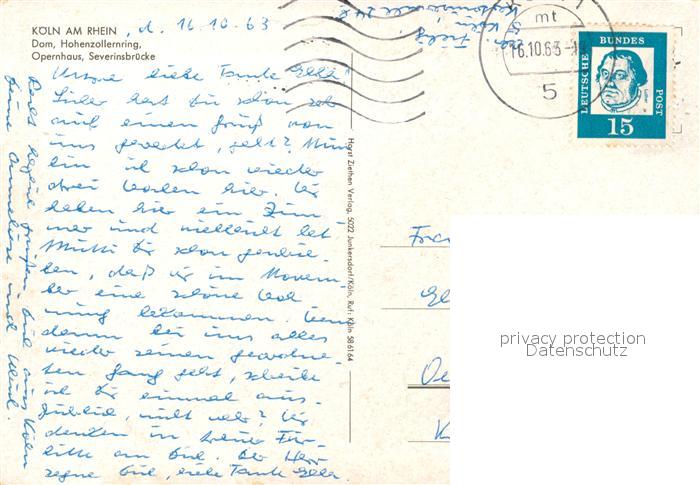 KÖLN AM RHEIN , d. 16.10.63
Dom, Hohenzollernring,
Opernhaus, Severinsbrücke
Unsere liebe Tante Ella!
Sicher hast Du schon sehr
auf einen Gruß von
uns gewartet, gelt? Nun
bin ich schon wieder
drei Wochen hier. Wir
haben hier ein Zim-
mer und vielleicht hat
Mutti Dir schon geschrie-
ben, daß wir im Novem-
ber eine schöne Woh
nung bekommen. Wenn
dann bei uns alles
wieder seinen gewohn-
ten Gang geht, schreibe
ich Dir einmal aus-
führlich, nicht wahr? Wir
denken in treuer Für-
bitte an Dich. Der Herr
segne Dich, liebe Tante Ella.
Recht herzlich grüßen Dich aus Köln
Deine Anneliese und
Horst Ziethen Verlag, 5022 Junkersdorf/Köln, Ruf: Köln 58 61 64
5 Köln
16.10.63
mt
5
DEUTSCHE
BUNDES
POST
15
privacy protection
Datenschutz